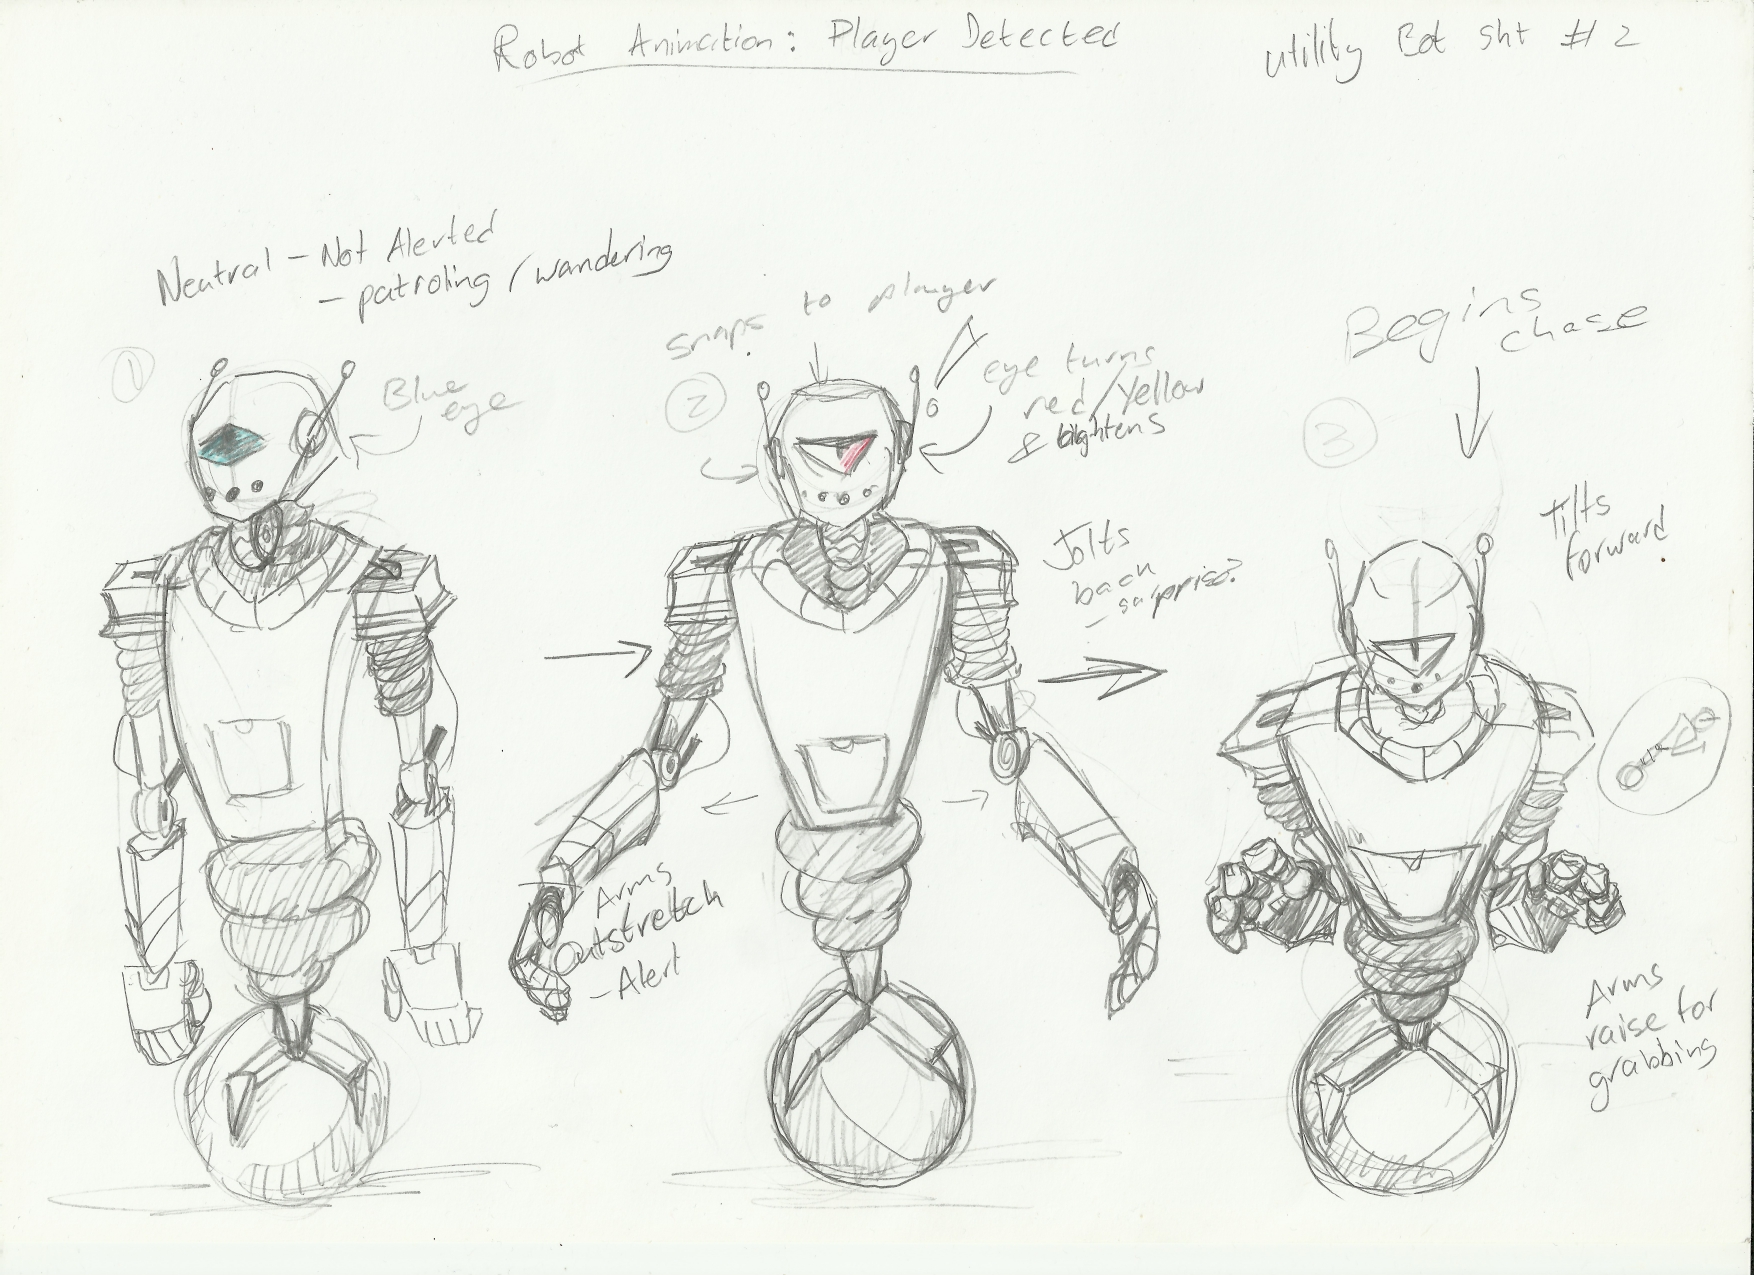 Robot Animation: Player Detected
Utility Bot Sht #2
Neutral - Not Alerted
- patroling / wandering
1
Blue
eye
snaps to player
2
eye turns
red/Yellow
& brightens
Jolts
back
- surprise?
Arms
Outstretch
- Alert
Begins
chase
3
Tilts
forward.
Arms
raise for
grabbing